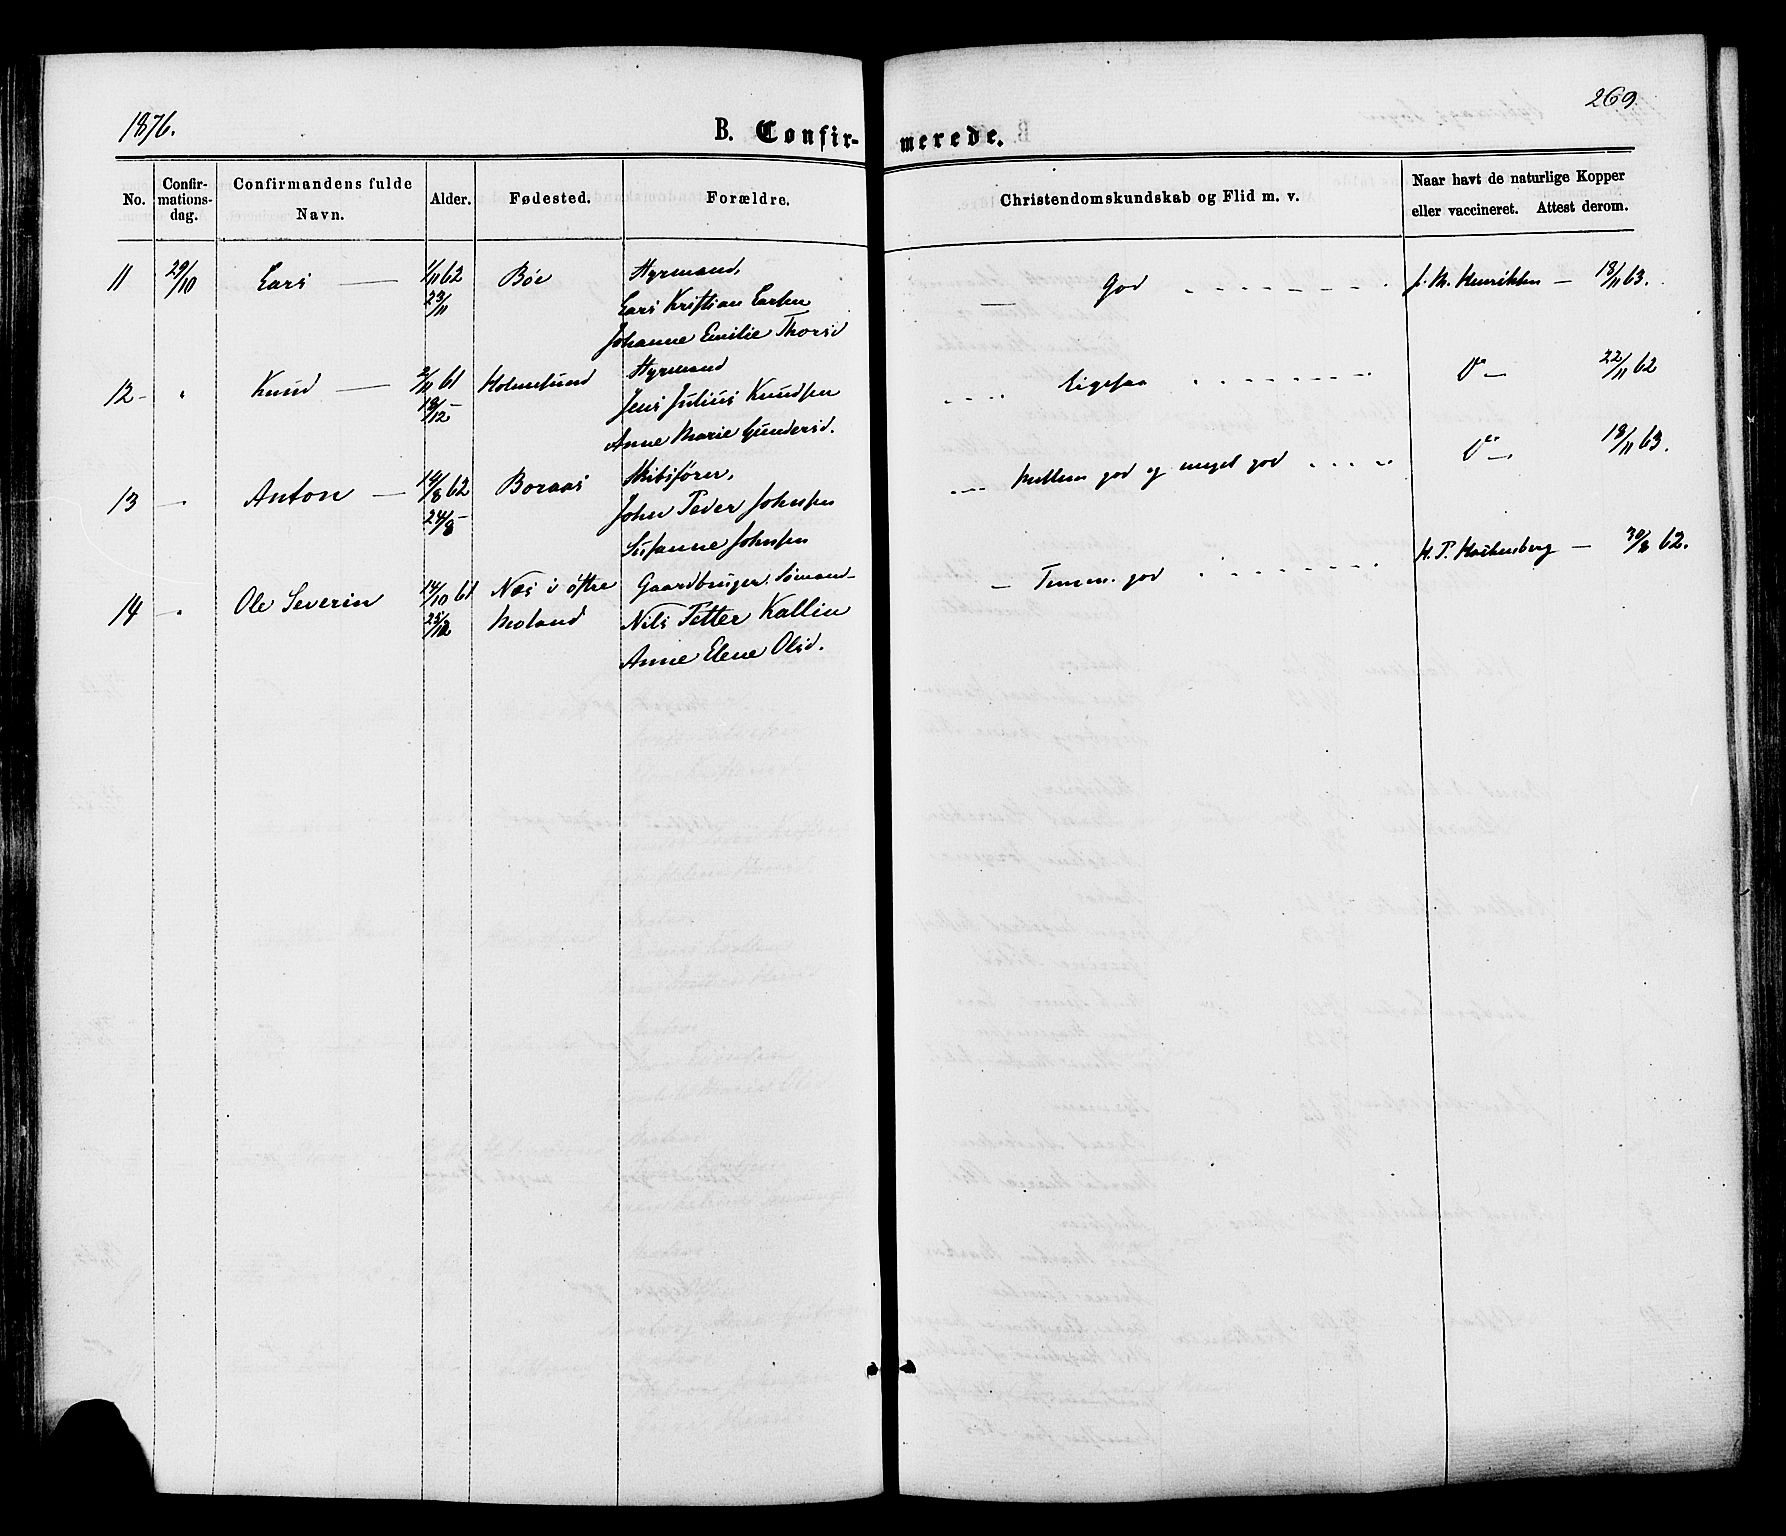 1876.
269
B. Confirmerede.
No. Confirmationsdag. Confirmandens fulde Navn. Alder. Fødested. Forældre. Christendomskundskab og Flid m. v. Naar havt de naturlige Kopper eller vaccineret. Attest derom.
11 29/10 Lars — 1/11 62 Bøe Styrmand, — God J. M. Henriksen — 18/11 63.
23/11 Lars Kristian Larsen
Johanne Emilie Thorsd
12 - " Knud — 2/11 61 Holmesund Styrmand Ligesaa Do — 22/11 62
18/12 - Jens Julius Knudsen
Anne Marie Gundersd.
13 — " Anton — 14/8 62 Boraas Skibsfører, Mellem god og meget god Do — 18/11 63.
24/8 - John Peder Johnsen
Susanne Johnsen
14 - " Ole Severin 14/10 61 Næs i østre Gaardbruger, Sømand - — god H. P. — 30/8 62.
25/12 Moland Nils Petter Kallin
Anne Elene Olsd.